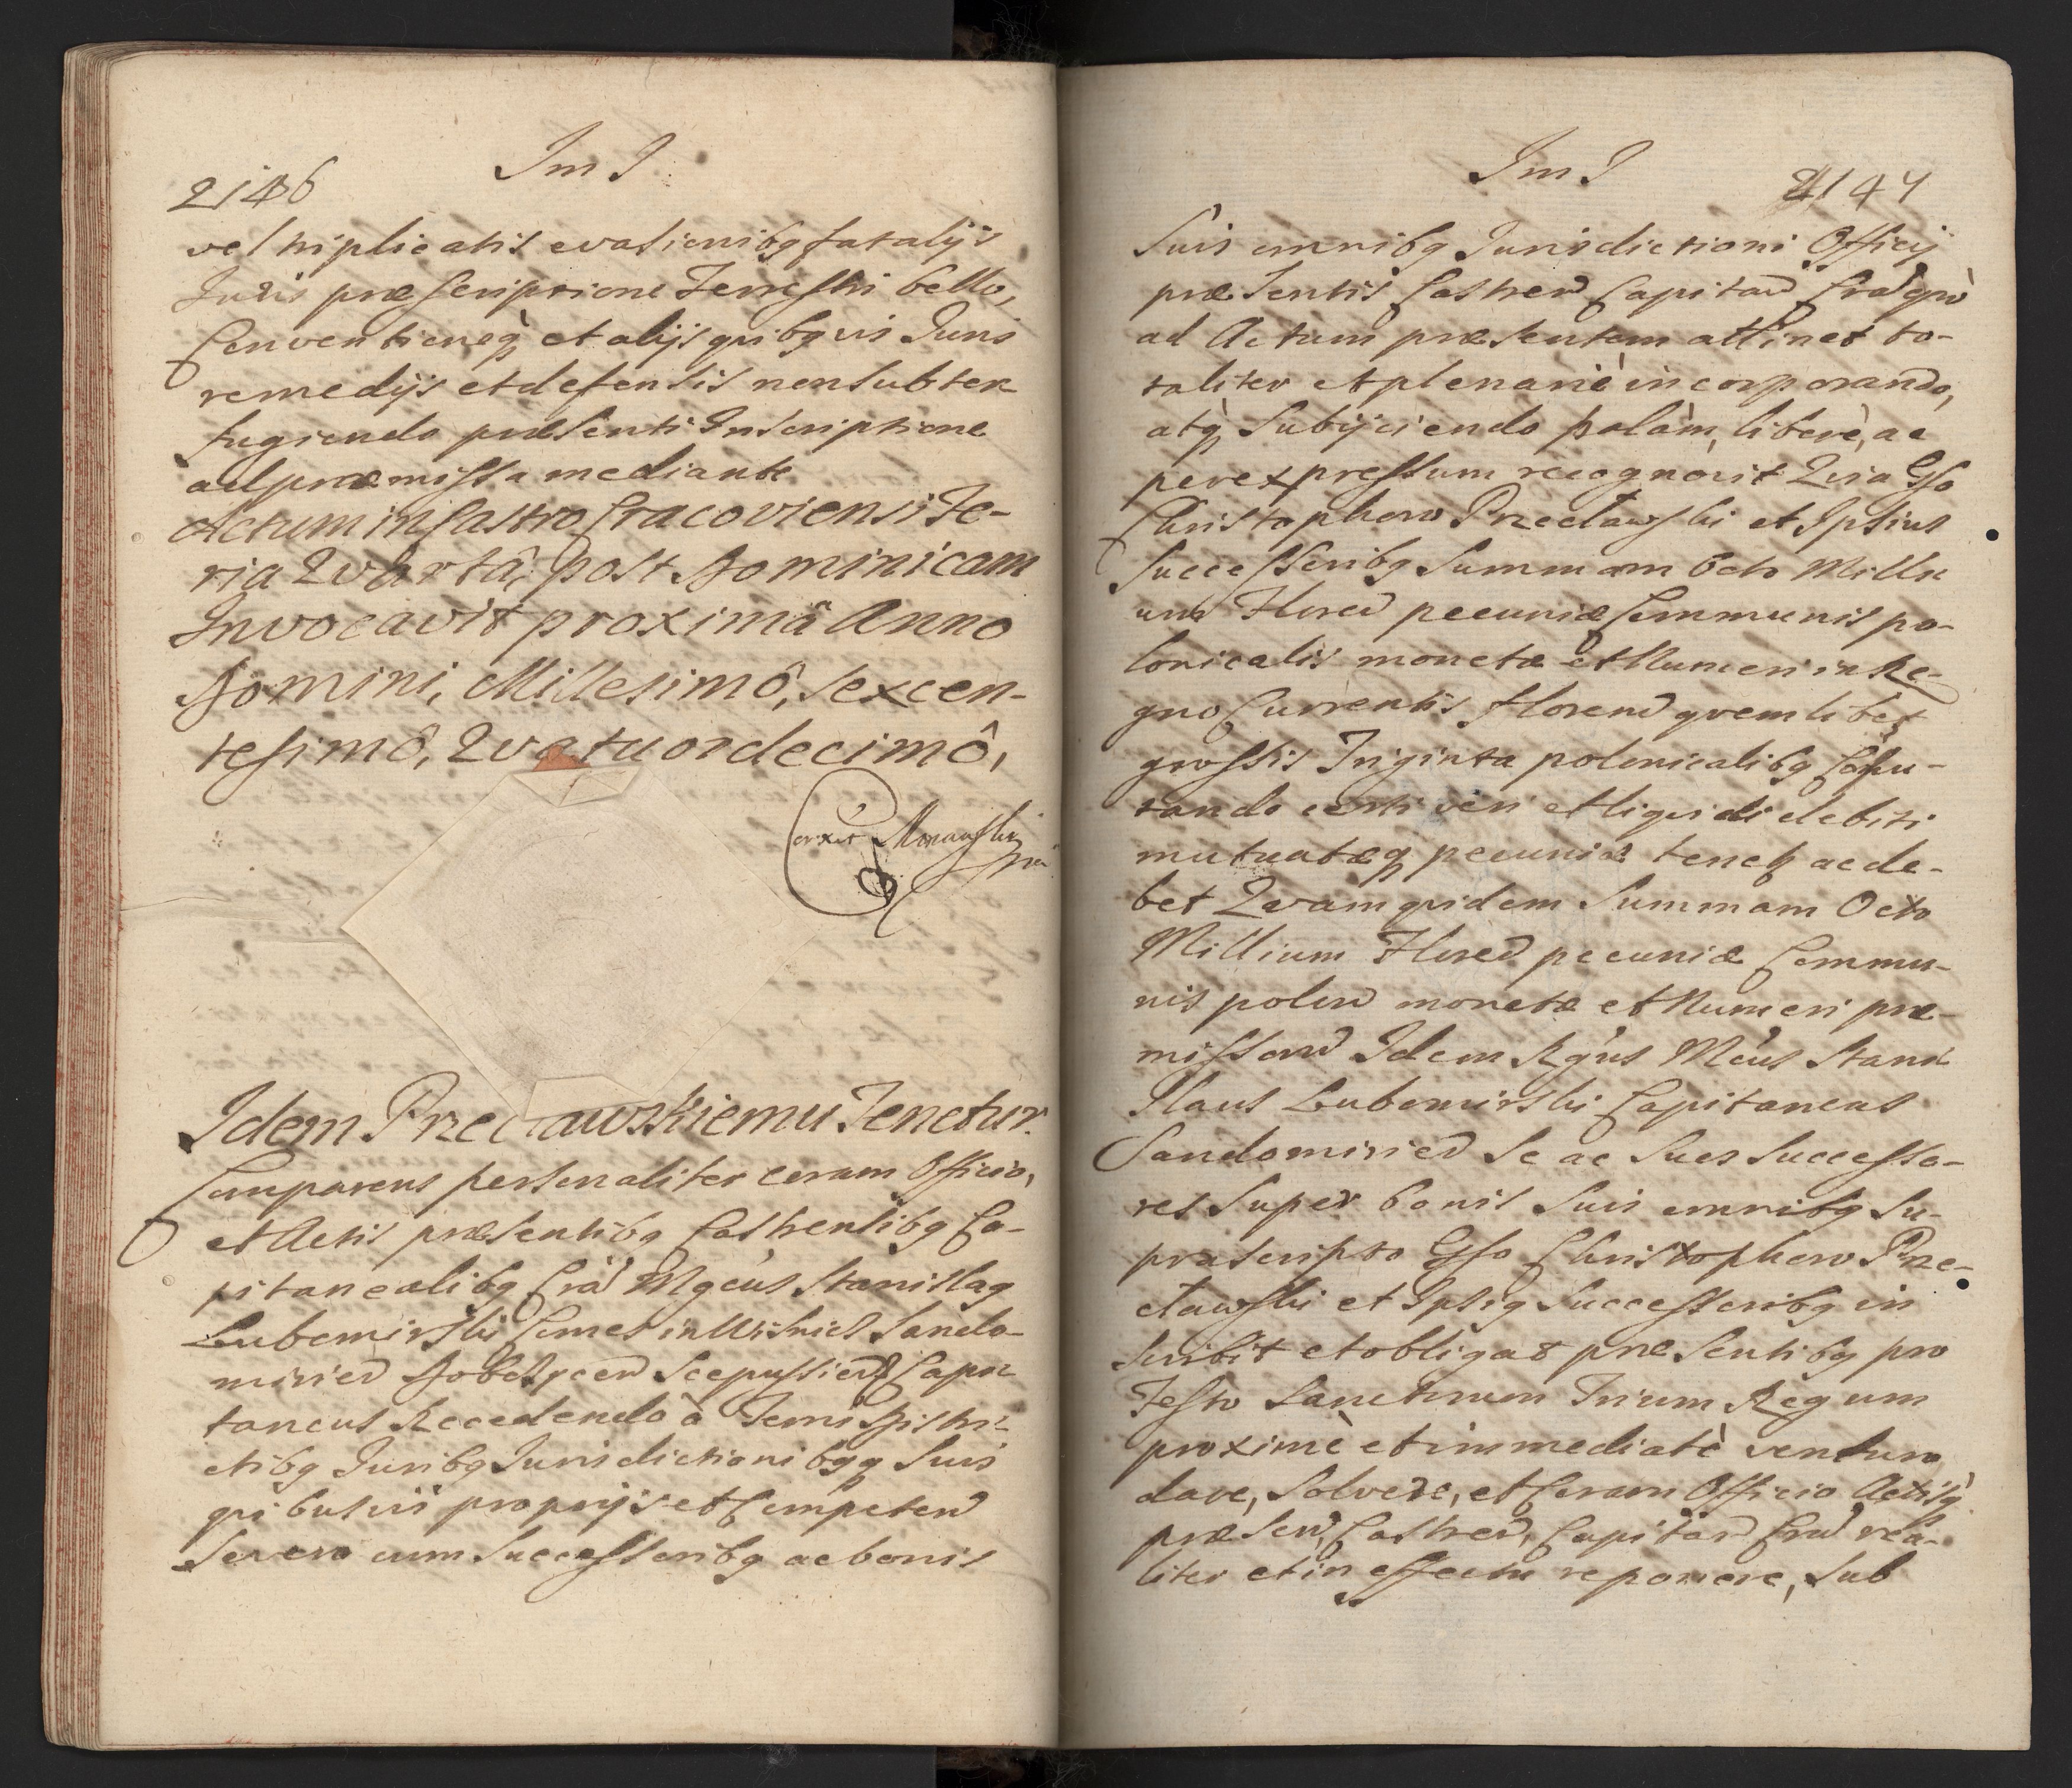 2146
Im I
vel triplicatis evasionibq fatalijs
Juris præscriptione Terrestri bello,
Conventioneq et alijs quibqvis Juris
remedijs et defensis non subter
fugiendo præsenti Inscriptione
ad præmissa mediante
Actum in Castro Cracoviensi Fe-
ria Qvarta, post Dominicam
Invocavit proximâ Anno
Domini, Millesimô, sexcen-
tesimô, Qvatuordecimô,
Idem Przecławskiemu Tenetur.
Comparens personaliter coram Officio,
et Actis præsentibq Castrensibq Ca-
pitanealibq Cra Mgcus Stanislaq
Lubomirski Comes in Wisnicz Sando-
mirien Dobczycen Scepussien Capi
taneus Recedendo à Terris Distri-
ctibq Juribq Jurisdictionibqq suis
quibusvis proprijs et Competen
Se vero cum Successoribq ac bonis
Im I
2147
Suis omnibq Jurisdictioni Officij
præsentis Castren Capitan Cra quo
ad Actum præsentem attinet to-
taliter et plenariè incorporando,
atq Subijciendo palàm, liberè, ac
per expressum recognovit Quia Gso
Christophoro Przecławski et Ipsius
Successoribq Summam Octo Milli
um Floren pecuniæ Communis po-
lonicalis monetæ et Numeri in Re-
gno Currentis florenū qvemlibet
grossis Triginta polonicalibq Compu-
tando certi veri et liquidi debiti
mutuatæq pecuniæ tenetq ac de-
bet Qvamquidem Summam Octo
Millium Floren pecuniæ Commu-
nis polon monetæ et Numeri præ-
misson Idem Mgcus Stani
slaus Lubomirski Capitaneus
Sandomirien Se ac Suos Successo-
res Super bonis Suis omnibq Su-
prascripto Gso Christophoro Prze-
cławski et Ipsiq Successoribq in
scribit et obligat præsentibq pro
Festo Sanctorum Trium Regum
proximè et immediatè venturo
dare, Solvere, et Coram Officio Actisq
præsen, Castren, Capitan Cra rea-
liter et in effectu reponere, Sub